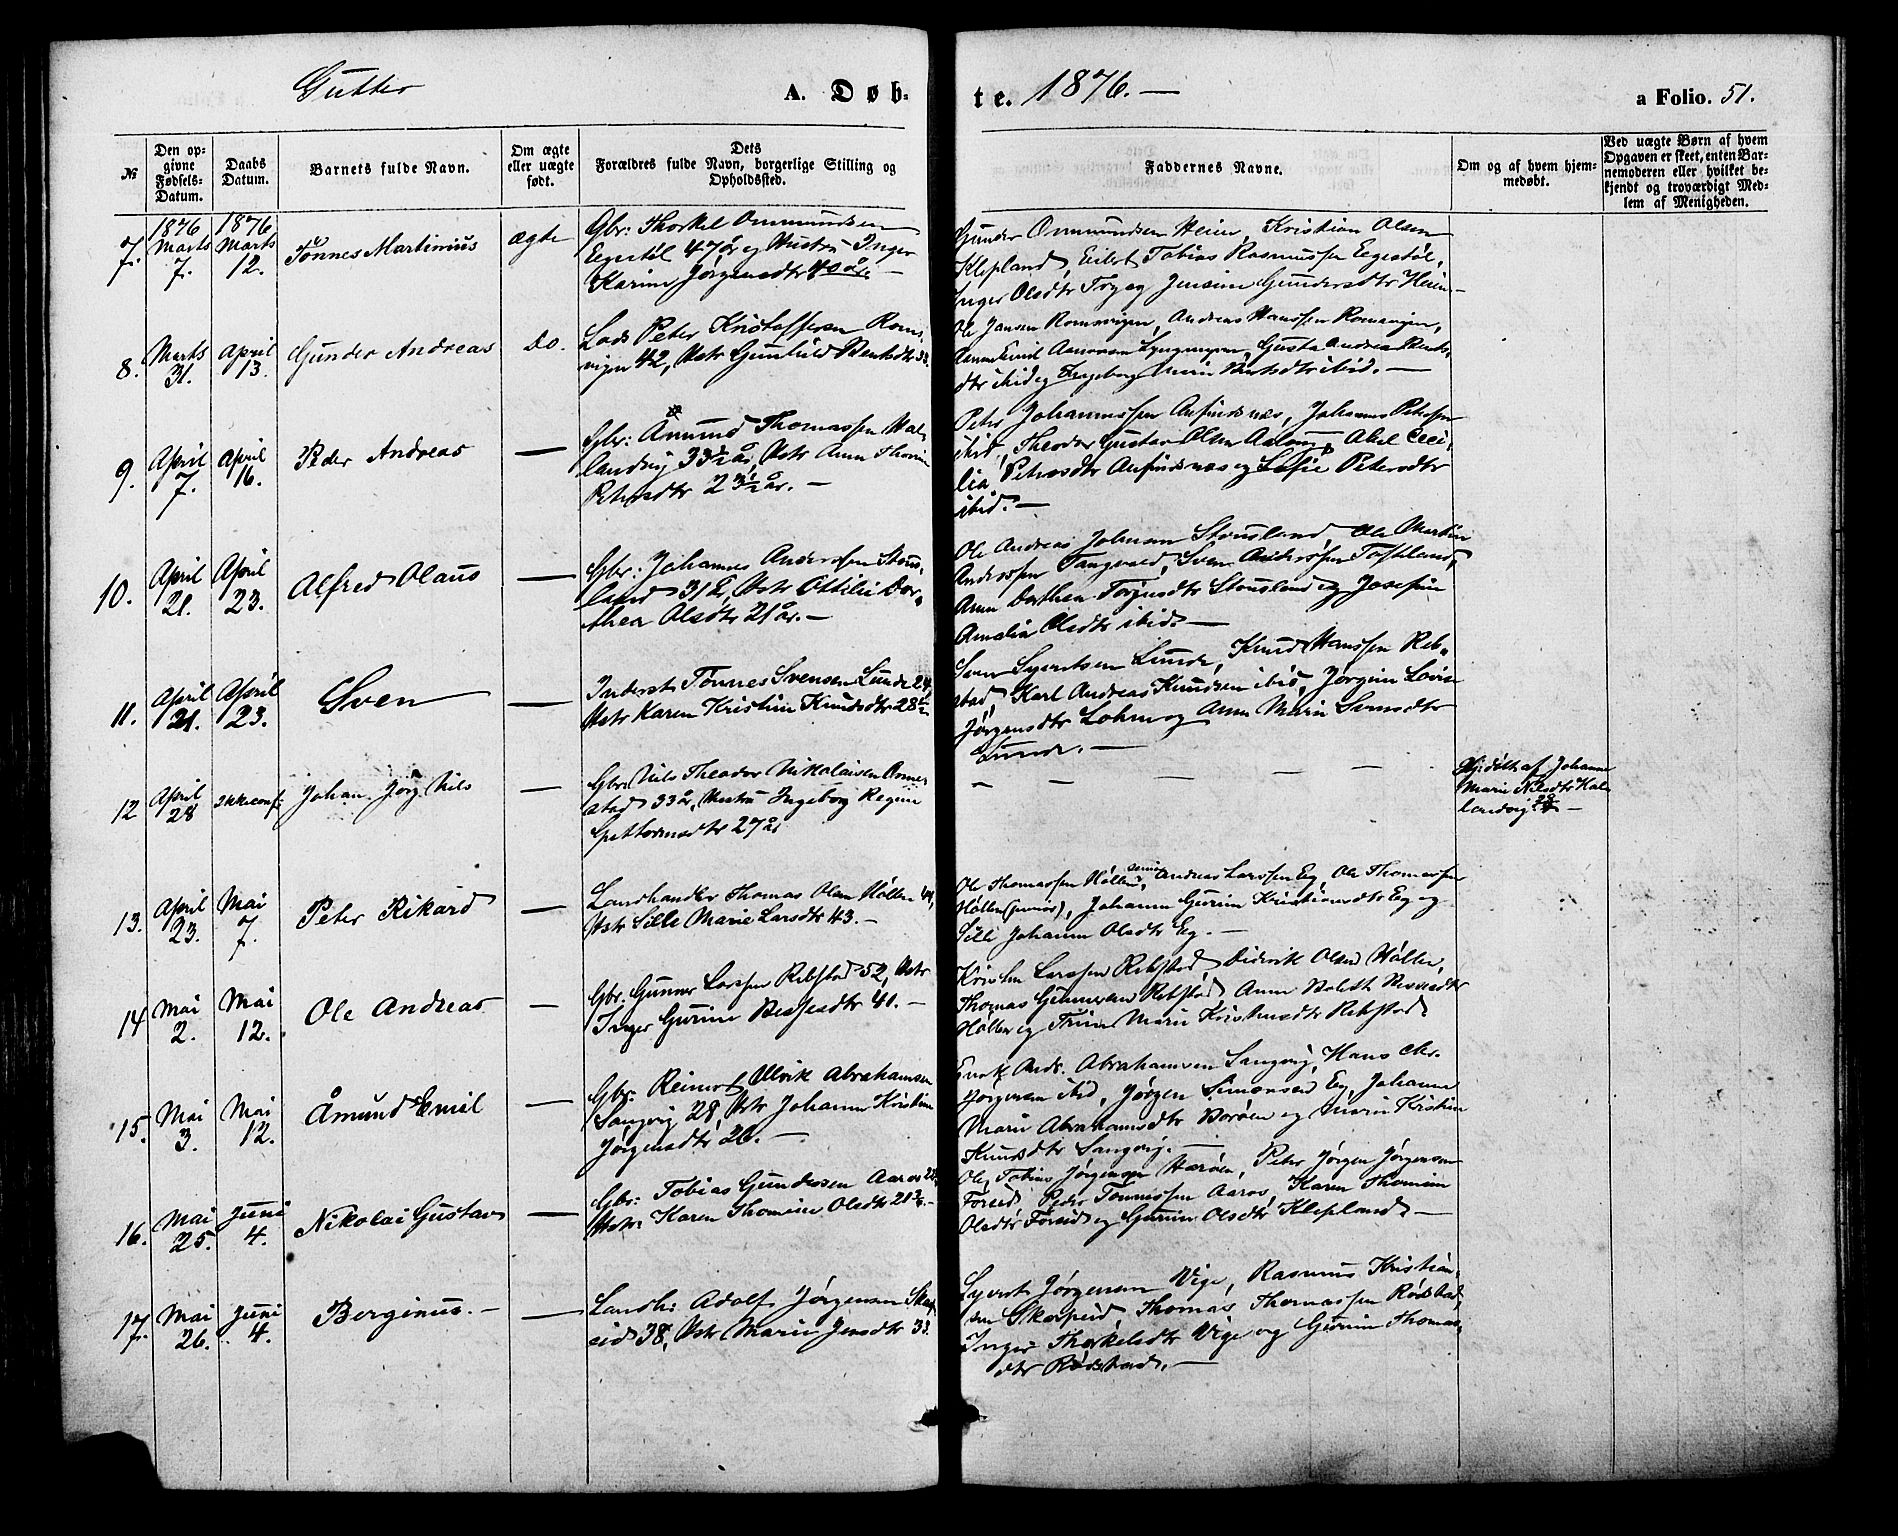 Gutter A. Døb-
te. 1876. — a Folio. 51.
№
Den op-
givne
Fødsels-
Datum.
Daabs
Datum.
Barnets fulde Navn.
Om ægte
eller uægte
født.
Dets
Forældres fulde Navn, borgerlige Stilling og
Opholdssted.
Faddernes Navne.
Om og af hvem hjem-
medøbt.
Ved uægte Børn af hvem
Opgaven er skeet, enten Bar-
nemoderen eller hvilket be-
kjendt og troværdigt Med-
lem af Menigheden.
7. 1876 Marts 7. 1876 Marts 12. Tönnes Martinius ægte
Gbr: Thorkel Ommundsen
Egestøl 47 år og Hustru Inger
Karine Jørgensdtr 40 år. —
Gunder Ommundsen Heien, Kristian Olsen
Klepland, Eilert Tobias Rasmussen Egestøl,
Inger Olsdtr Try og Jensine Gundersdtr Heien —
8. Marts 31. April 13. Gunder Andreas do.
Lods Peter Kristoffersen Roms-
vigen 42, Hstr Gunhild Bentsdtr 33.
Ole Jansen Romsvigen, Andreas Hanssen Romsvigen,
Aanensen Gusta Andrea Bents-
dtr ibid og Ingeborg Marie Bentsdtr ibid. —
9. April 7. April 16. Peder Andreas —
Gbr: Åmund Thomassen Hal-
landvig 33½ år, Hstr Anne Thorine
Petersdtr 23½ år. —
Peter Johannessen Anfindsnæs, Johannes Petersen
ibid, Theodor Gustav Olsen Abel Ceci-
lia Petersdtr Anfindsnæs og Sofie Petersdtr
ibid. —
10. April 21. April 23. Alfred Olaus —
Gbr: Johannes Anderssen Stous-
land 31½, Hstr Ottilie Dor-
thea Olsdtr 21 år. —
Ole Andreas Johnsen Stousland, Ole Martin
Anderssen Tangvald, Sven Anderssen Tofteland,
Anne Dorthea Torjusdtr Stousland og Josefine
Amalia Olsdtr ibid. —
11. April 21. April 23. Sven —
Inderst Tönnes Svensen Lunde 24,
Hstr Karen Kristine Knudsdtr 28½
Sven Syvertsen Lunde, Knud Hanssen Reb-
stad, Karl Andreas Knudsen ibid, Jørgine Lovise
Jørgensdtr Lohne og Anne Marie Svensdtr
Lunde. —
12 April 28 Ikke conf. Johan Jørg. Nils —
Gbr Nils Theodor Nikolaisen
33 år, Hustru Ingeborg Regine
27 år
— — — — — —
Hj.døbt af Johanne
Marie Nilsdtr Hal-
landvig —
13. April 23. Mai 7. Peter Rikard —
Landhandler Thomas Olsen Høllen 44,
Hstr Sille Marie Larsdtr 43. —
Ole Thomassen Høllen senior, Andreas Larssen Eg, Ole Thomassen
Høllen (junior), Johanne Gurine Kristiansdtr Eg og
Sille Johanne Olsdtr Eg. —
14 Mai 2. Mai 12. Ole Andreas —
Gbr: Gunner Larssen Rebstad 52, Hstr
Inger Gurine 41. —
Kristen Larssen Rebstad, Didrik Olsen Høllen,
Thomas Gunnersen Rebstad, Anne
Høllen og Trine Marie Kristensdtr Rebstad.
15. Mai 3. Mai 12. Åmund Emil —
Gbr: Reinert Ulrik Abrahamsen
Langvig 28, Hstr Johanne Kristine
Jørgensdtr 26. —
Enok Ands. Abrahamsen Langvig, Hans Chr.
Jørgensen ibid, Jørgen Simonsen Eg, Johanne
Marie Abrahamsdtr Borøen og Marie Kristine
Knudsdtr Langvig. —
16. Mai 25. Juni 4. Nikolai Gustav —
Gbr: Tobias Gundersen Aaros 28,
Hstr: Karen Thomine Olsdtr 21
Ole Tobias Jørgensen Herøen, Peter Jørgen Jørgensen
Peder Tönnessen Aaros, Karen Thomine
Olsdtr og Gurine Olsdtr Klepland. —
17. Mai 26. Juni 4. Berginus. — —
Landh: Adolf Jørgensen Skarp-
eid 38, Hstr Marie Jensdtr 33.
Syvert Jørgensen Vige, Rasmus Kristian-
sen Skarpeid, Thomas Thomassen Rødstad,
Inger Thorkelsdtr Vige og Gurine Thomas-
dtr Rødstad. —